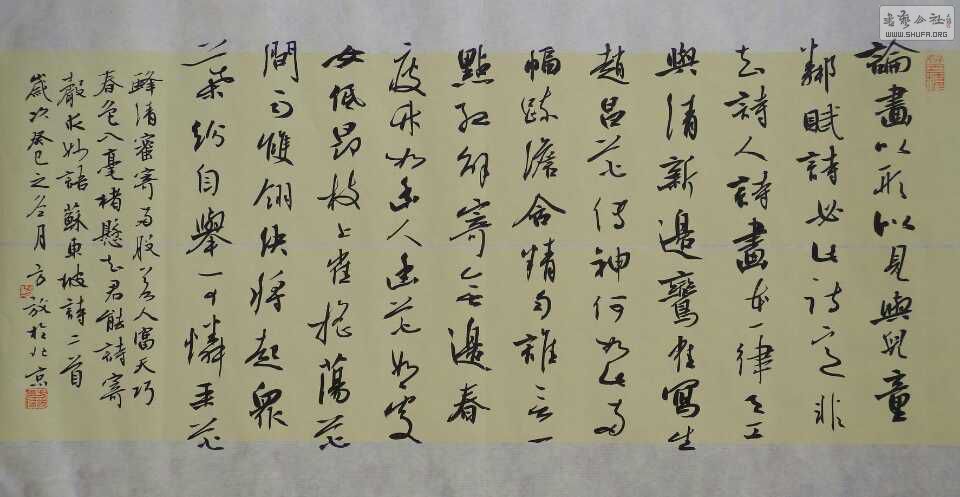 論畫以形似見與兒童
鄰賦詩必此詩定非
知詩人詩畫本一律天工
與清新邊鸞雀寫生
趙昌花傳神何如此兩
幅疎澹含精勻誰言一
點紅解寄無邊春
瘦竹如幽人幽花如處
女低昂枝上雀搖蕩花
間雨雙翎決將起眾
葉紛自舉可憐采花
蜂清蜜寄兩股若人富天巧
春色入毫楮懸知君能詩寄
聲求妙語蘇東坡詩二首
歲次癸巳之冬月方放於北京
WWW.SHUFA.ORG